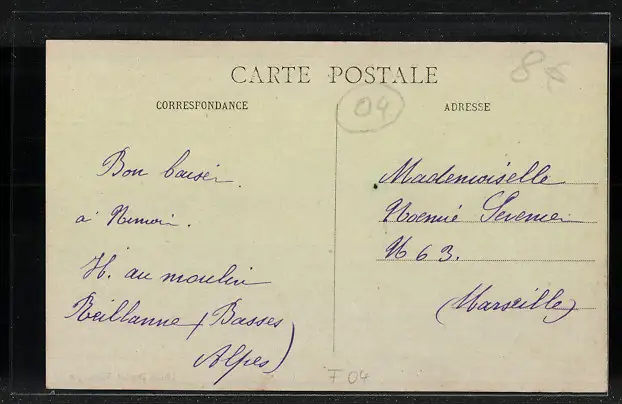 CARTE POSTALE
CORRESPONDANCE
ADRESSE
84
04
Bon baiser
à
H. au moulin
Reillanne (Basses
Alpes)
Mademoiselle
Noemie
N 63.
(Marseille)
F 04